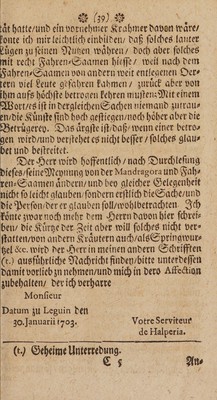 (39)
tät hatte/und ein vornehmer Krahmer davon wäre/
konte ich mir leichtlich einbilden/ daß solches lauter
Lügen zu seinen Nutzen währen/ doch aber solches
mit recht Fahren-Saamen hiesse/ weil nach dem
Fahren-Saamen von andern weit entlegenen Oer-
tern viel Leute gefahren kahmen/ zurück aber von
ihn alts höchste betrogen fahren musten: Mit einem
Wort/es ist in dergleichen Sachen niemand zutrau-
en/die Künste sind hoch gestiegen/noch höher aber die
Betrügerey. Das ärgste ist/daß/wenn einer betro-
gen wird/und verstehet es nicht besser/solches glau-
bet und bestreitet.
Der Herr wird hoffentlich/ nach Durchlesung
dieses/seine Meynung von der Mandragora und Fah-
ren-Saamen ändern/und bey gleicher Gelegenheit
nicht so leicht glauben/sondern erstlich die Sache/und
die Person/der er glauben soll/wohlbetrachten. Ich
könte zwar noch mehr dem Herrn davon hier schrei-
ben/ die Kürtze der Zeit aber will solches nicht ver-
statten/von andern Kräutern auch/als Springwur-
tzel &c. wird der Herr in meinen andern Schrifften
(1.) ausführliche Nachricht finden/bitte unterdessen
damit vorlieb zu nehmen/und mich in dero Affection
zubehalten/ der ich verharre
Monsieur
Datum zu Leguin den
30. Januarii 1703.
Votre Serviteur
de Halperia.
(1.) Geheime Unterredung.
C 5
An-